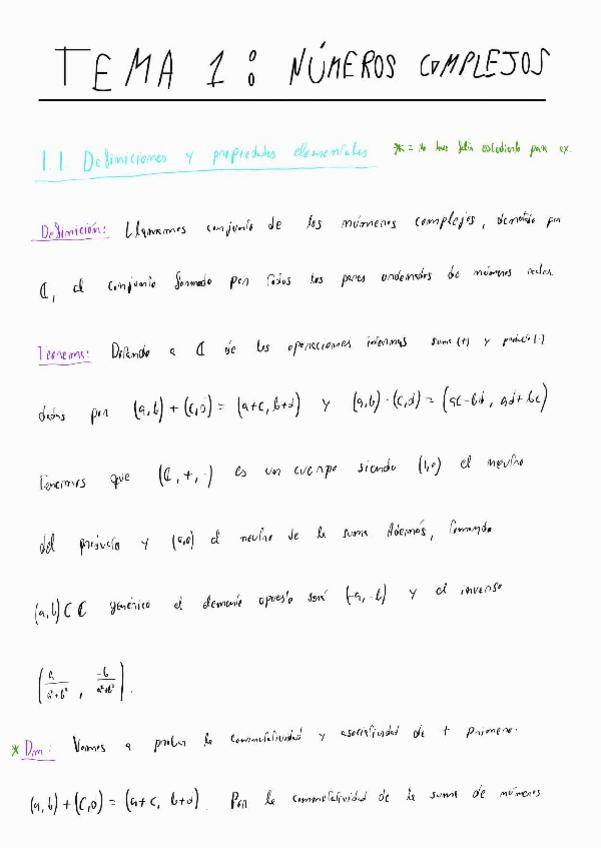 TEMA 1: NÚMEROS COMPLEJOS
1.1 Definiciones y propiedades elementales * = no hace falta estudiarlo para ex.
Definición: Llamamos conjunto de los números complejos, denotado por
ℂ, al conjunto formado por todos los pares ordenados de números reales.
Teorema: Dotando a ℂ de las operaciones internas suma (+) y producto (·)
dadas por (a,b) + (c,d) = (a+c, b+d) y (a,b) · (c,d) = (ac-bd, ad+bc)
Tenemos que (ℂ, +, ·) es un cuerpo siendo (1,0) el neutro
del producto y (0,0) el neutro de la suma. Además, tomando
(a,b) ⊂ ℂ genérico el elemento opuesto será (-a,-b) y el inverso
(a/(a²+b²), -b/(a²+b²)).
* Dm: Vamos a probar la conmutatividad y asociatividad de + primero.
(a,b) + (c,d) = (a+c, b+d). Por la conmutatividad de la suma de números